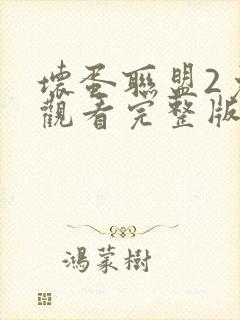 壞蛋聯盟2
觀看完整版
鴻蒙樹